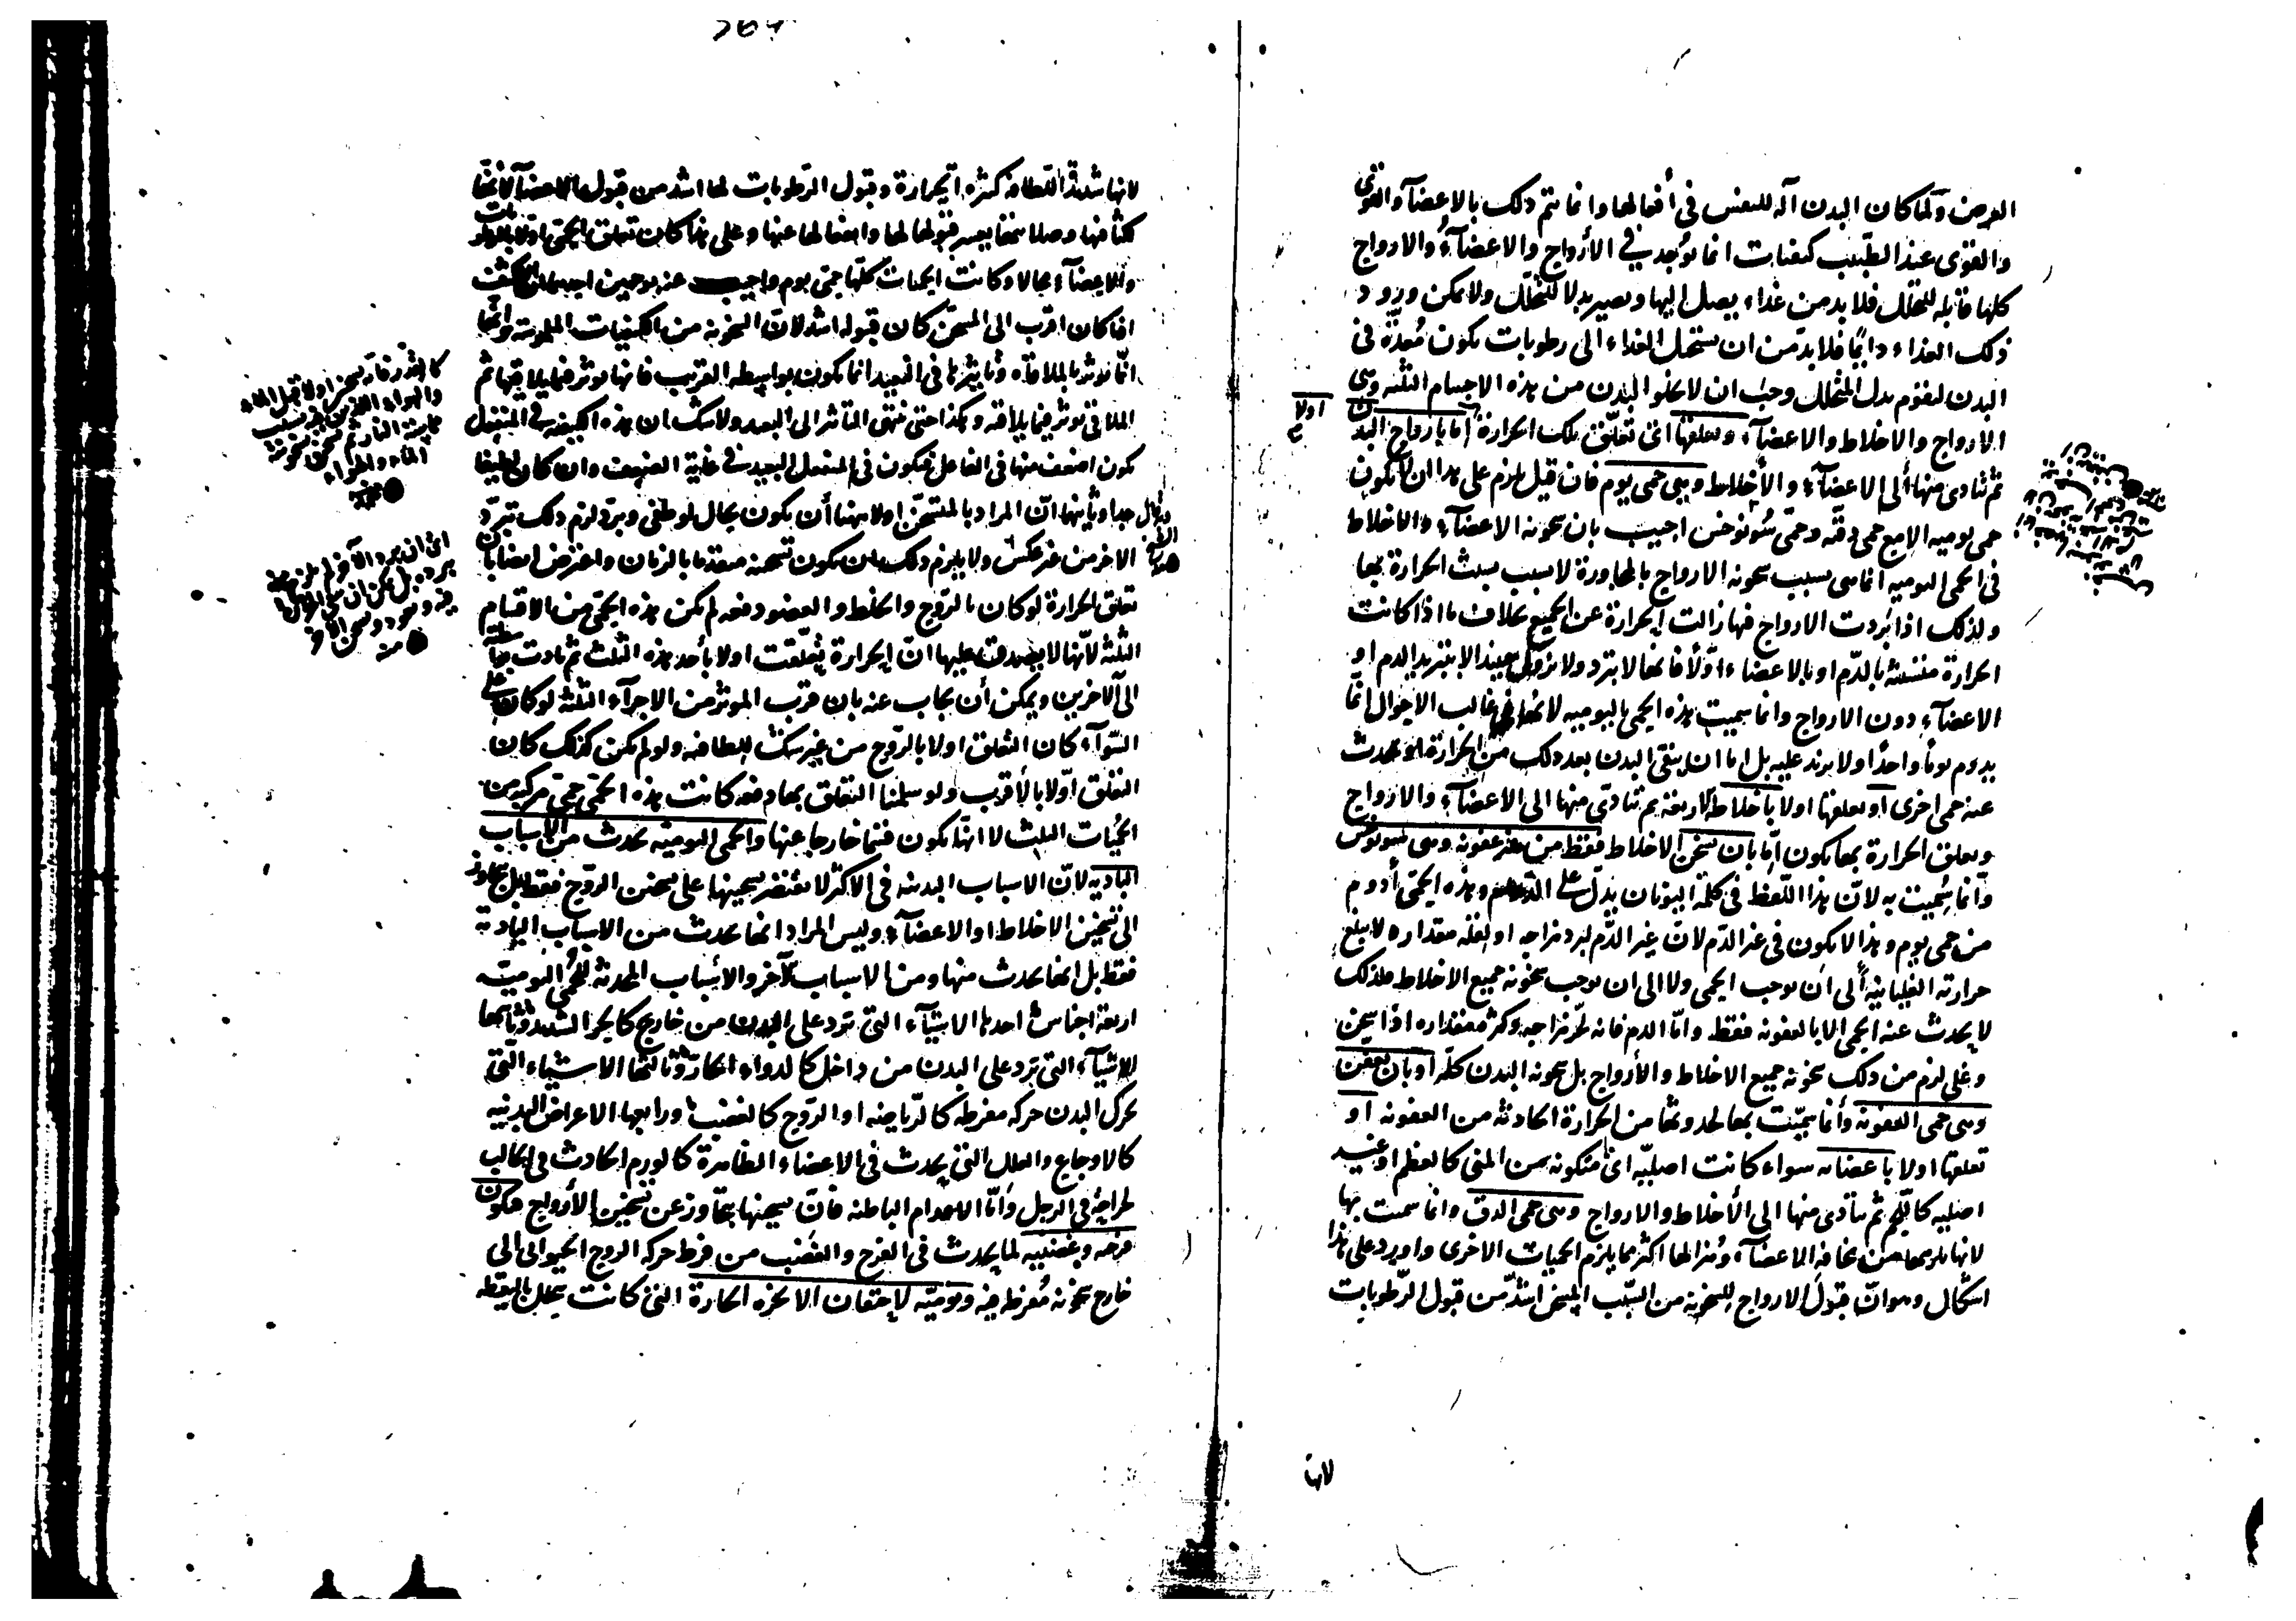 الغرض ولما كان البدن آلة للنفس في أفعالها وانما يتم ذلك بالاعضآء والقوى
والقوى عند الطبيب كيفيات انما توجد في الأرواح والاعضآء والارواح
كلها قابله للتحلل فلا بد من غذاء يصل اليها ويصير بدلا للتحلل ولا يمكن ورود
ذلك الغذاء دايما فلا بد من ان يستحيل الغذاء الى رطوبات يكون معدة في
البدن لتقوم بدل المتحلل وجب ان لا يخلو البدن من هذه الاجسام الثلثه وهي
الارواح والاخلاط والاعضآء وتعلقها اى تعلق تلك الحرارة اما بارواح البدن اولا
ثم تتادى منها الى الاعضآء والأخلاط وهي حمى يوم فان قيل يلزم على هذا ان لا يكون
حمى يوميه الا مع حمى دقه وحمى سونوخس اجيب بان سخونه الاعضآء والاخلاط
في الحمى اليوميه انما هى بسبب سخونه الارواح بالمجاورة لا بسبب تشبث الحرارة بها
ولذلك اذا بردت الارواح فيها زالت الحرارة عن الجميع بخلاف ما اذا كانت
الحرارة متشبثة بالدم او بالاعضاء اولا فانها لا تبرد ولا تزول حينئذ الا بتبريد الدم او
الاعضآء دون الارواح وانما سميت هذه الحمى باليوميه لانها في غالب الاحوال انما
يدوم يوما واحدا ولا يزيد عليه بل اما ان ينقى البدن بعد ذلك من الحرارة او يحدث
عنه حمى اخرى او تعلقها اولا باخلاطه الاربعة ثم تتادى منها الى الاعضآء والارواح
وتعلق الحرارة بها يكون اما بان تسخن الاخلاط فقط من غير عفونه وهى سونوخس
وانما سميت به لان هذا اللفظ في كلمة اليونان يدل على الدوام وهذه الحمى أدوم
من حمى يوم وهذا لا يكون في غير الدم لان غير الدم لبرد مزاجه او لقلة مقداره لا يبلغ
حرارته الغليانية الى ان توجب الحمى ولا الى ان توجب سخونه جميع الاخلاط فلذلك
لا يحدث عنه الحمى الا بالعفونه فقط واما الدم فانه لحر مزاجه وكثرة مقداره اذا سخن
وغلى لزم من ذلك سخونه جميع الاخلاط والأرواح بل سخونه البدن كله او بان تعفن
وهى حمى العفونه وانما سميت بها لحدوثها من الحرارة الحادثه من العفونه او
تعلقها اولا باعضائه سواء كانت اصليه اى متكونه من المنى كالعظم او غير
اصليه كاللحم ثم تتادى منها الى الأخلاط والارواح وهى حمى الدق وانما سميت بها
لانها يلزمها من نحافة الاعضآء وهزالها اكثر مما يلزم الحميات الاخرى واورد على هذا
اشكال وهو ان قبول الارواح للسخونه من السبب المسخن اشد من قبول الرطوبات
لانها
لانها شديدة اللطافة كثيره الحرارة وقبول الرطوبات لها اشد من قبول الاعضآء لانها
كثافتها وصلابتها يعسر قبولها لها وانفعالها عنها وعلى هذا كان تعلق الحمى اولا بالرطوبات
والاعضآء محالا وكانت الحميات كلها حمى يوم واجيب عنه بوجهين احدهما ان الاكثف
اذا كان اقرب الى المسخن كان قبوله اشد لان السخونه من الكيفيات الملموسة وانها
انما توثر بالملاقاة وتاثيرها في البعيد انما يكون بواسطه القريب فانها توثر فيما يلاقيها ثم
الملاقى توثر فيما يلاقيه وهكذا حتى ينتهى التاثر الى البعيد ولا شك ان هذه الكيفيه في المنفعل
يكون اضعف منها في الفاعل فيكون في المنفعل البعيد في غاية الضعف وان كان لطيفا
جدا وثانيها ان المراد بالمتسخن اولا ههنا أن يكون بحال لو طفى وبرد لزم ذلك تبرد
الاخر من غير عكس ولا يلزم ذلك ان يكون تسخنه متقدما بالزمان واعترض ايضا بان
تعلق الحرارة لو كان بالروح والخلط والعضو دفعه لم يكن هذه الحمى من الاقسام
الثلثه لانها لا يصدق عليها ان الحرارة تعلقت اولا بأحد هذه الثلث ثم تادت بواسطته
الى الآخرين ويمكن أن يجاب عنه بان قرب الموثر من الاجزآء الثلثة لو كان على
السوآء كان التعلق اولا بالروح من غير شك للطافته ولو لم يكن كذلك كان
التعلق اولا بالأقرب ولو سلمنا التعلق بها دفعه كانت هذه الحمى حمى مركبه من
الحميات الثلث لا انها يكون قسما خارجا عنها والحمى اليوميه تحدث من الاسباب
الباديه لان الاسباب البدنيه في الاكثر لا يقتصر تسخينها على تسخين الروح فقط بل يتجاوز
الى تسخين الاخلاط او الاعضآء وليس المراد انها تحدث من الاسباب البادية
فقط بل انها تحدث منها ومن الاسباب الآخر والأسباب المحدثة للحمى اليوميه
اربعة اجناس احدها الاشيآء التى ترد على البدن من خارج كالحر الشديد وثانيها
الاشيآء التى ترد على البدن من داخل كالدواء الحار وثالثها الاشياء التى
تحرك البدن حركه مفرطه كالرياضه او الروح كالغضب ورابعها الاعراض البدنيه
كالاوجاع والعلل التى يحدث في الاعضاء الظاهرة كالورم الحادث في الحالب
لجراحة في الرجل واما الاورام الباطنه فان تسخينها يتجاوز عن تسخين الأرواح فيكون
فرحيه وغضبيه لما يحدث في الفرح والغضب من فرط حركه الروح الحيوانى الى
خارج سخونه مفرطه فيه ونوميه لاحتقان الابخره الحارة التى كانت تتحلل باليقظه